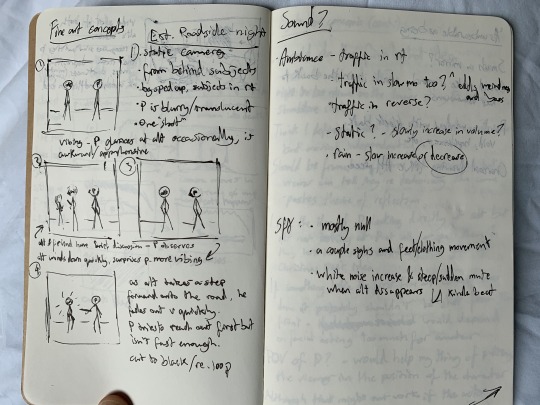 Fine art concepts
Est. Roadside - night
1). static camera
- from behind subjects
• bg sped up, subjects in rt
• P is blurry/translucent
• One "shot"
vibing - P glances at alt occasionally, is
awkward/apprehensive
①
2
3
alt & friend have brief discussion - P observes
alt winds down quickly, surprises p. more vibing
4
as alt takes a step
forward onto the road, he
fades out v quickly.
P tries to reach out first but
isn't fast enough.
cut to black/re.loop
Sound?
• Ambience - traffic in rt
traffic in slowmo too?
oddly
and
traffic in reverse?
- static? - slowly increase in volume?
• rain - slow increase or decrease
sfx: • mostly null
• a couple sighs and feet/clothing movement
• White noise increase & steep/sudden mute
when alt dissappears
kinda beat